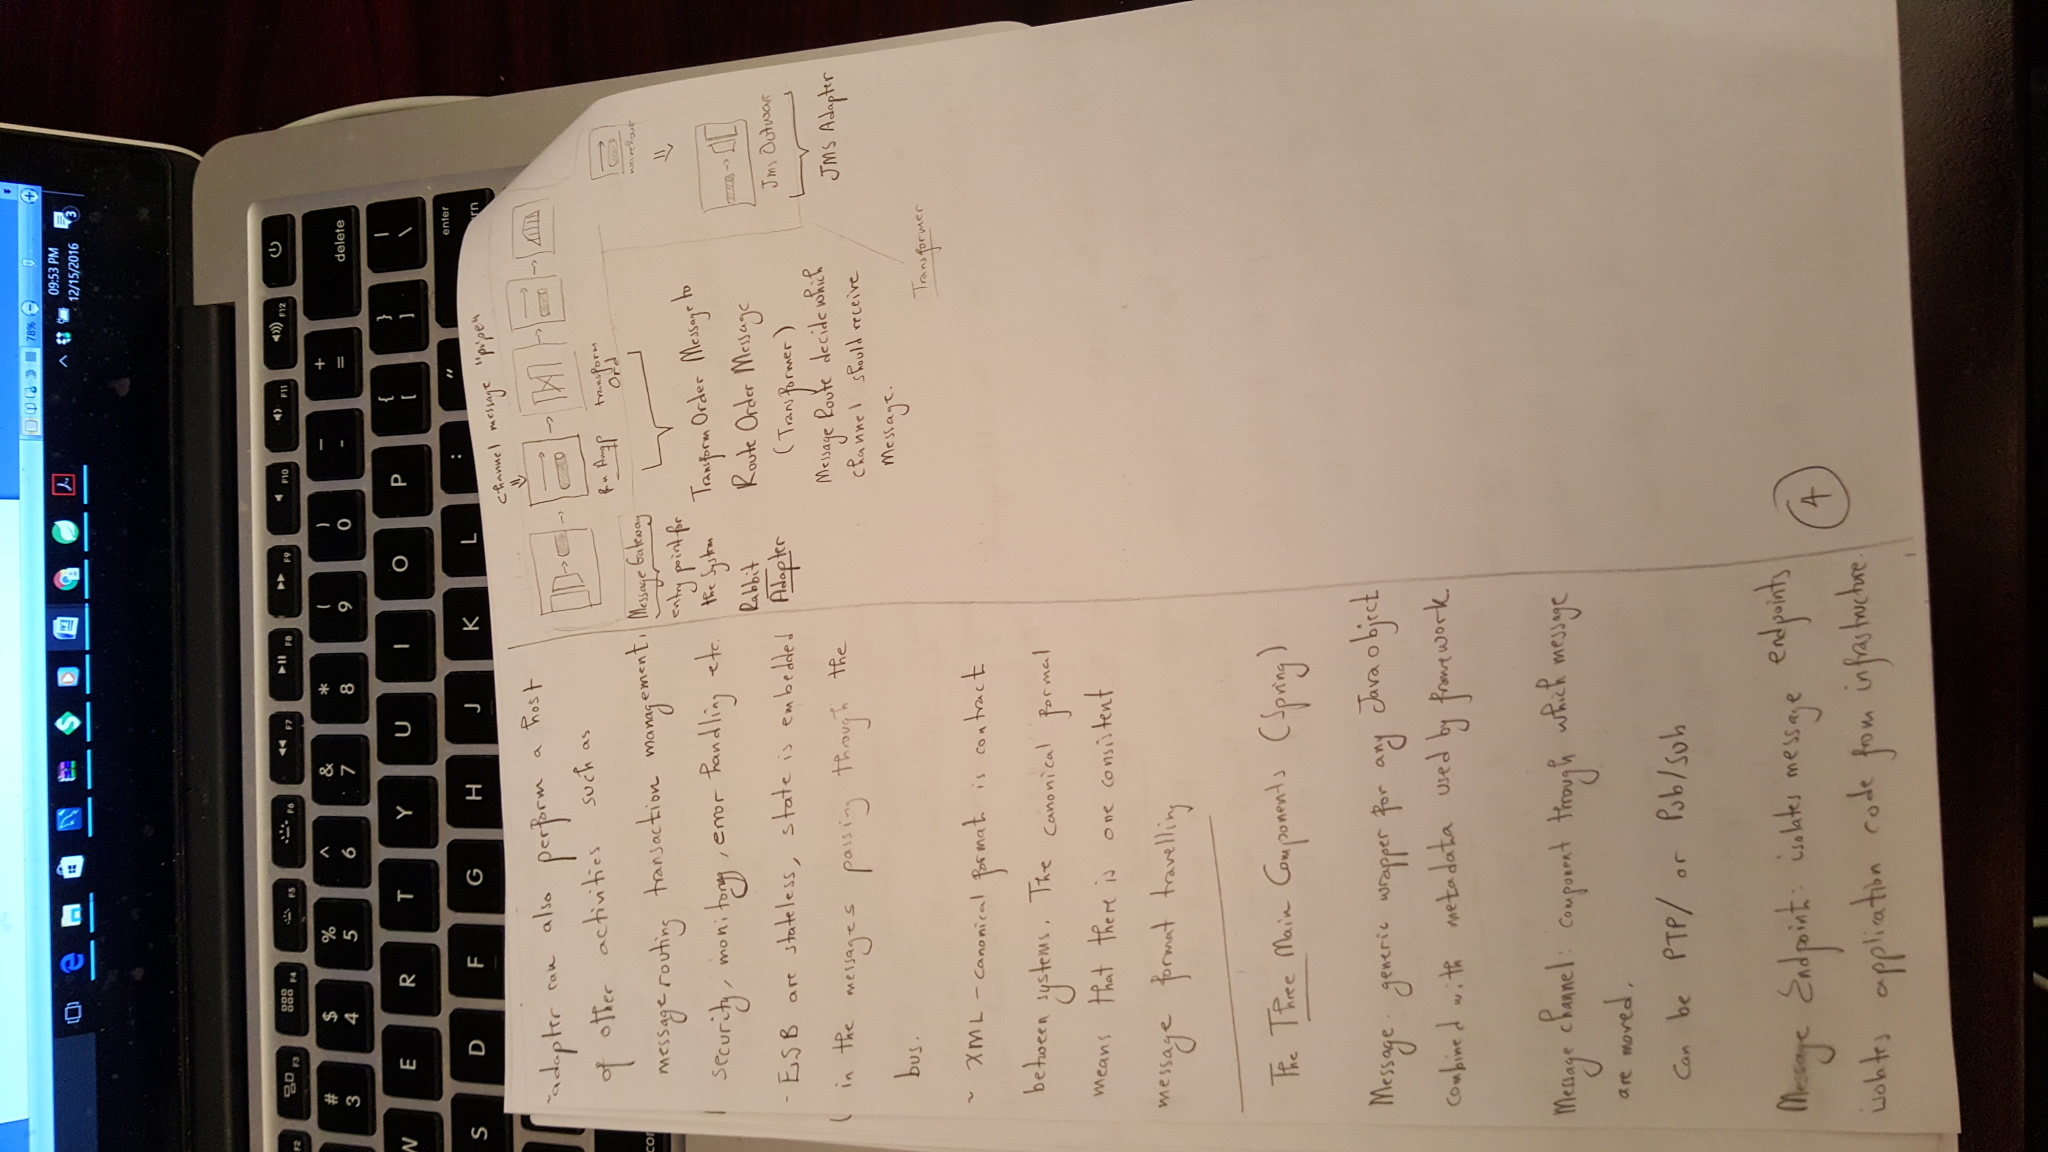 78%
09:53 PM
12/15/2016
3
F2 F3 F4 F5 F6 F7 F8 F9 F10 F11 F12
# $ % ^ & * ( ) _ +
3 4 5 6 7 8 9 0 - = delete
W E R T Y U I O P { [ } ] | \
S D F G H J K L : " enter
~adapter can also perform a host
of other activities such as
message routing transaction management,
security, monitorng, error handling etc.
- ESB are stateless, state is embedded
in the messages passing through the
bus.
~ XML - canonical format is contract
between systems. The canonical formal
means that there is one consistent
message format travelling
The Three Main Components (Spring)
Message. generic wrapper for any Java object
combined with metadata used by framework
Message channel: component through which message
are moved.
Can be PTP/ or Pub/Sub
Message Endpoint: isolates message endpoints
isolates application code from infrastructure.
channel message "pipe"
transform
Ord
Message Gateway
entry point for
the System
Rabbit
Adapter
Transform Order Message to
Route Order Message
(Transformer)
Message Route decide which
channel should receive
Message.
Transformer
Jms Outwar
JMS Adapter
4